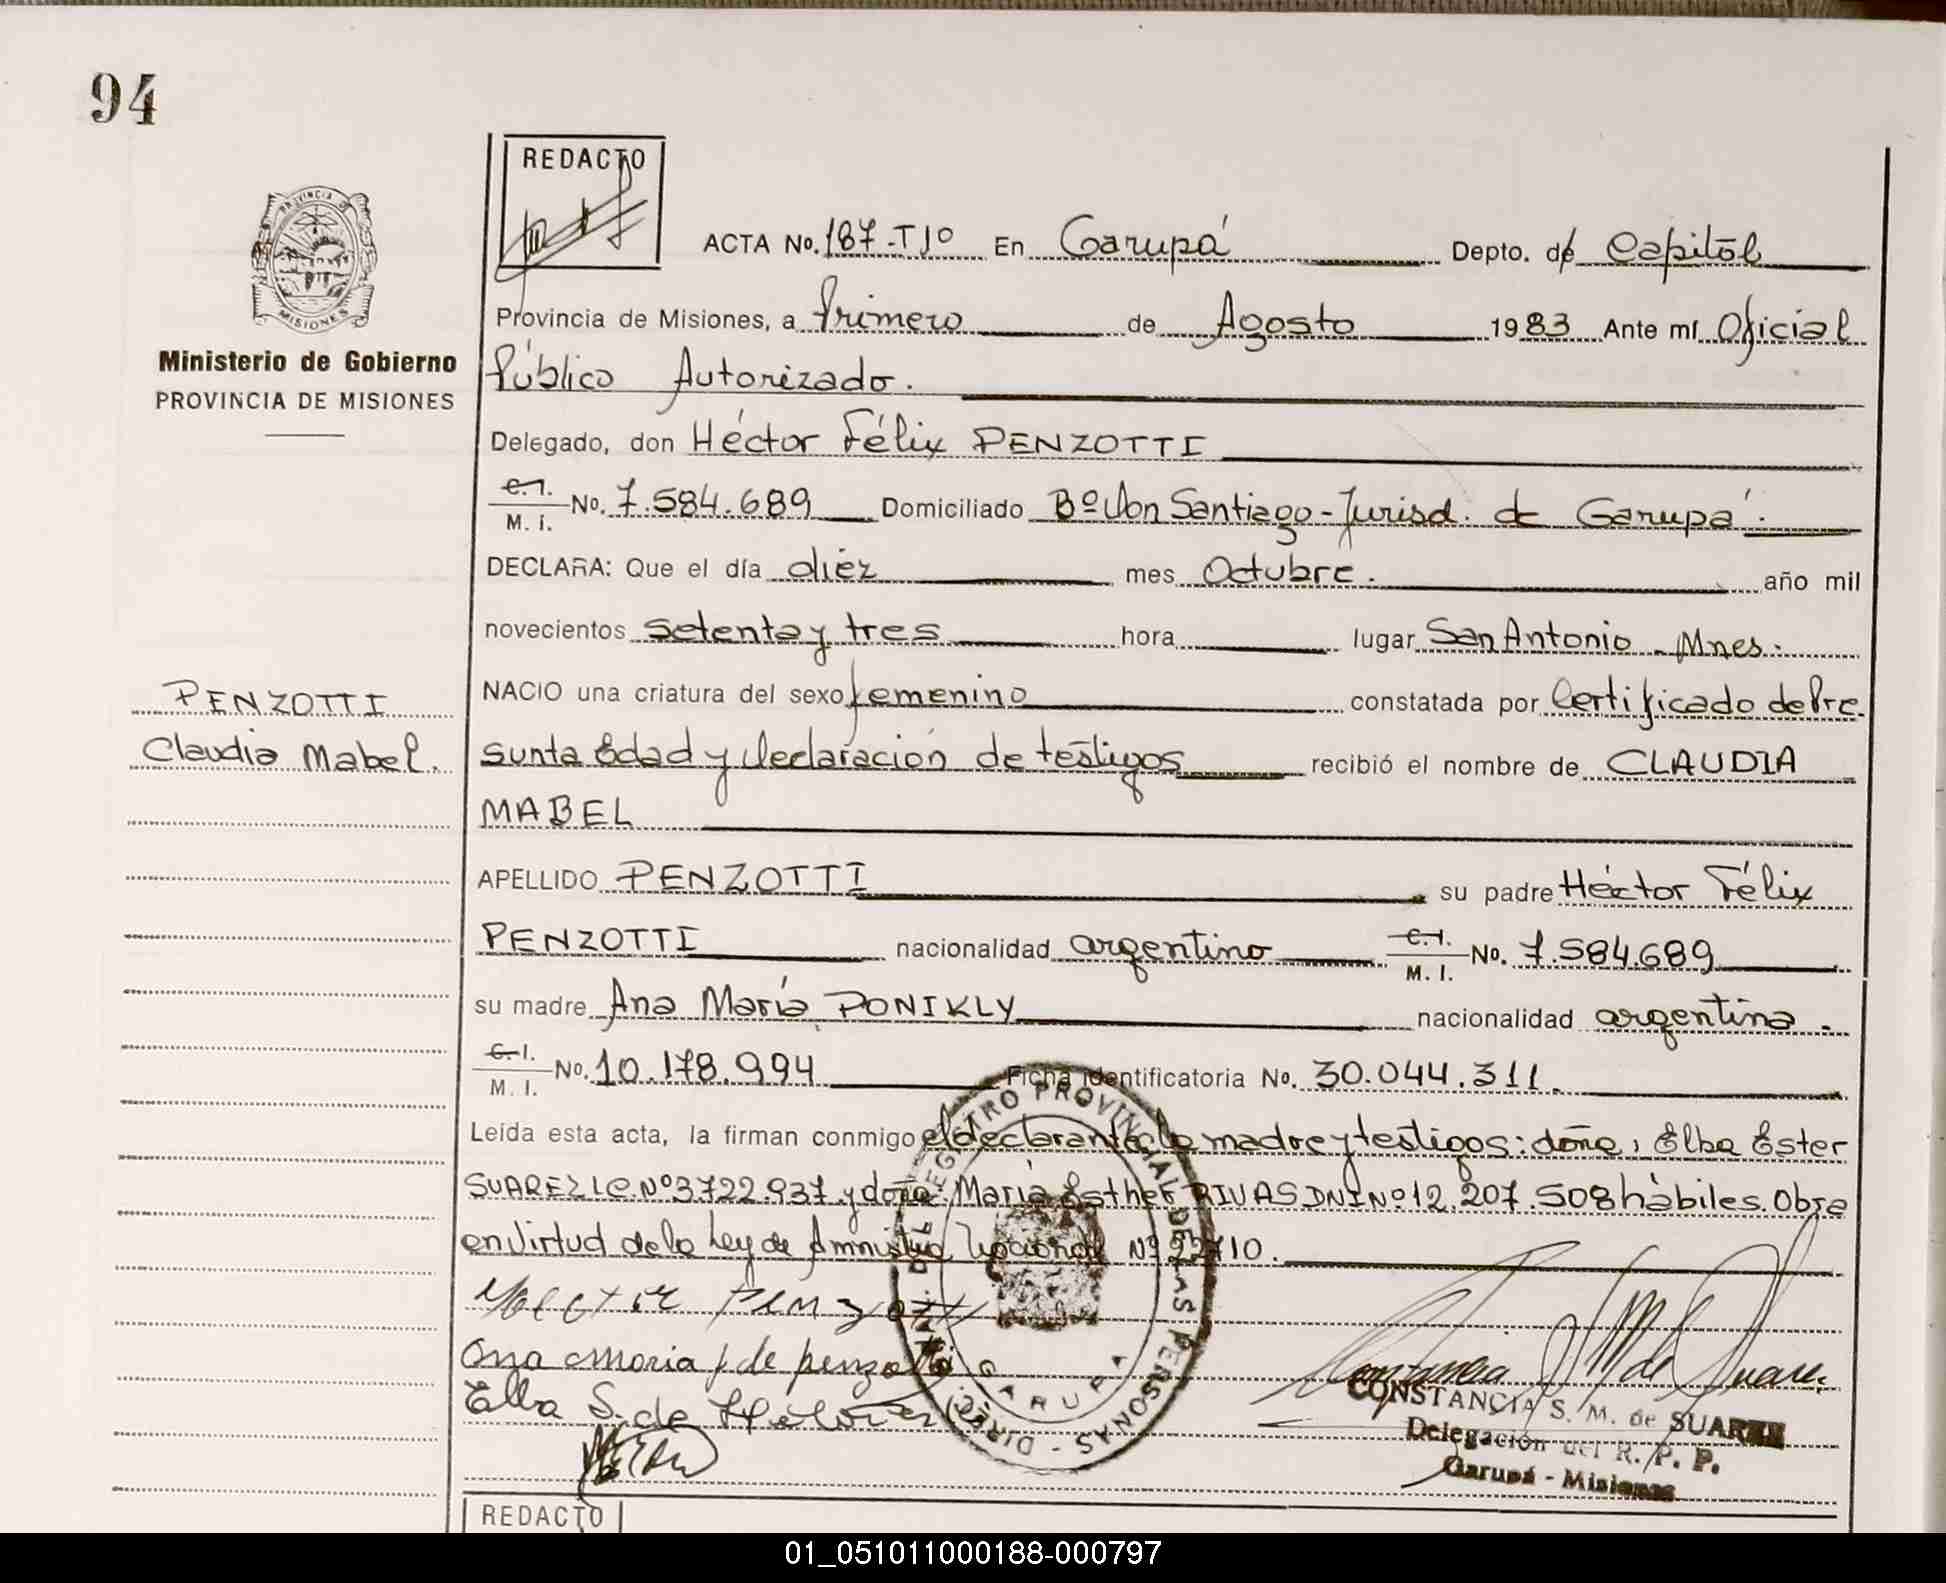 94
REDACTO
PROVINCIA DE
MISIONES
ACTA No. 187-Tº1º En Garupá Depto. de Capital
Ministerio de Gobierno
PROVINCIA DE MISIONES
Provincia de Misiones, a Primero de Agosto 1983 Ante mí Oficial
Público Autorizado.
Delegado, don Héctor Félix PENZOTTI
C.I. M. I. No. 7.584.689 Domiciliado Bº Don Santiago - Jurisd. de Garupá.
DECLARA: Que el día diez mes Octubre. año mil
novecientos setenta y tres hora lugar San Antonio - Mnes.
PENZOTTI
Claudia Mabel.
NACIO una criatura del sexo femenino constatada por Certificado de Pre
sunta Edad y declaración de testigos recibió el nombre de CLAUDIA
MABEL
APELLIDO PENZOTTI su padre Héctor Félix
PENZOTTI nacionalidad argentino C.I. M. I. No. 7.584.689
su madre Ana María PONIKLY nacionalidad argentina.
C.I. M. I. No. 10.178.994 Ficha Identificatoria No. 30.044.311.
Leída esta acta, la firman conmigo el declarante, la madre y testigos: doña, Elba Ester
SUAREZ LC Nº 3722.937 y doña: María Esther RIVAS DNI Nº 12.207.508 hábiles. Obra
en virtud de la Ley de Amnistía Nacional Nº 22710.
Hector Penzotti
Ana Maria P de Penzotti
Elba S. de
REGISTRO PROVINCIAL DE LAS PERSONAS - DIREC.
GARUPA
CONSTANCIA S. M. de SUAREZ
Delegación del R. P. P.
Garupá - Misiones
REDACTO
01_051011000188-000797